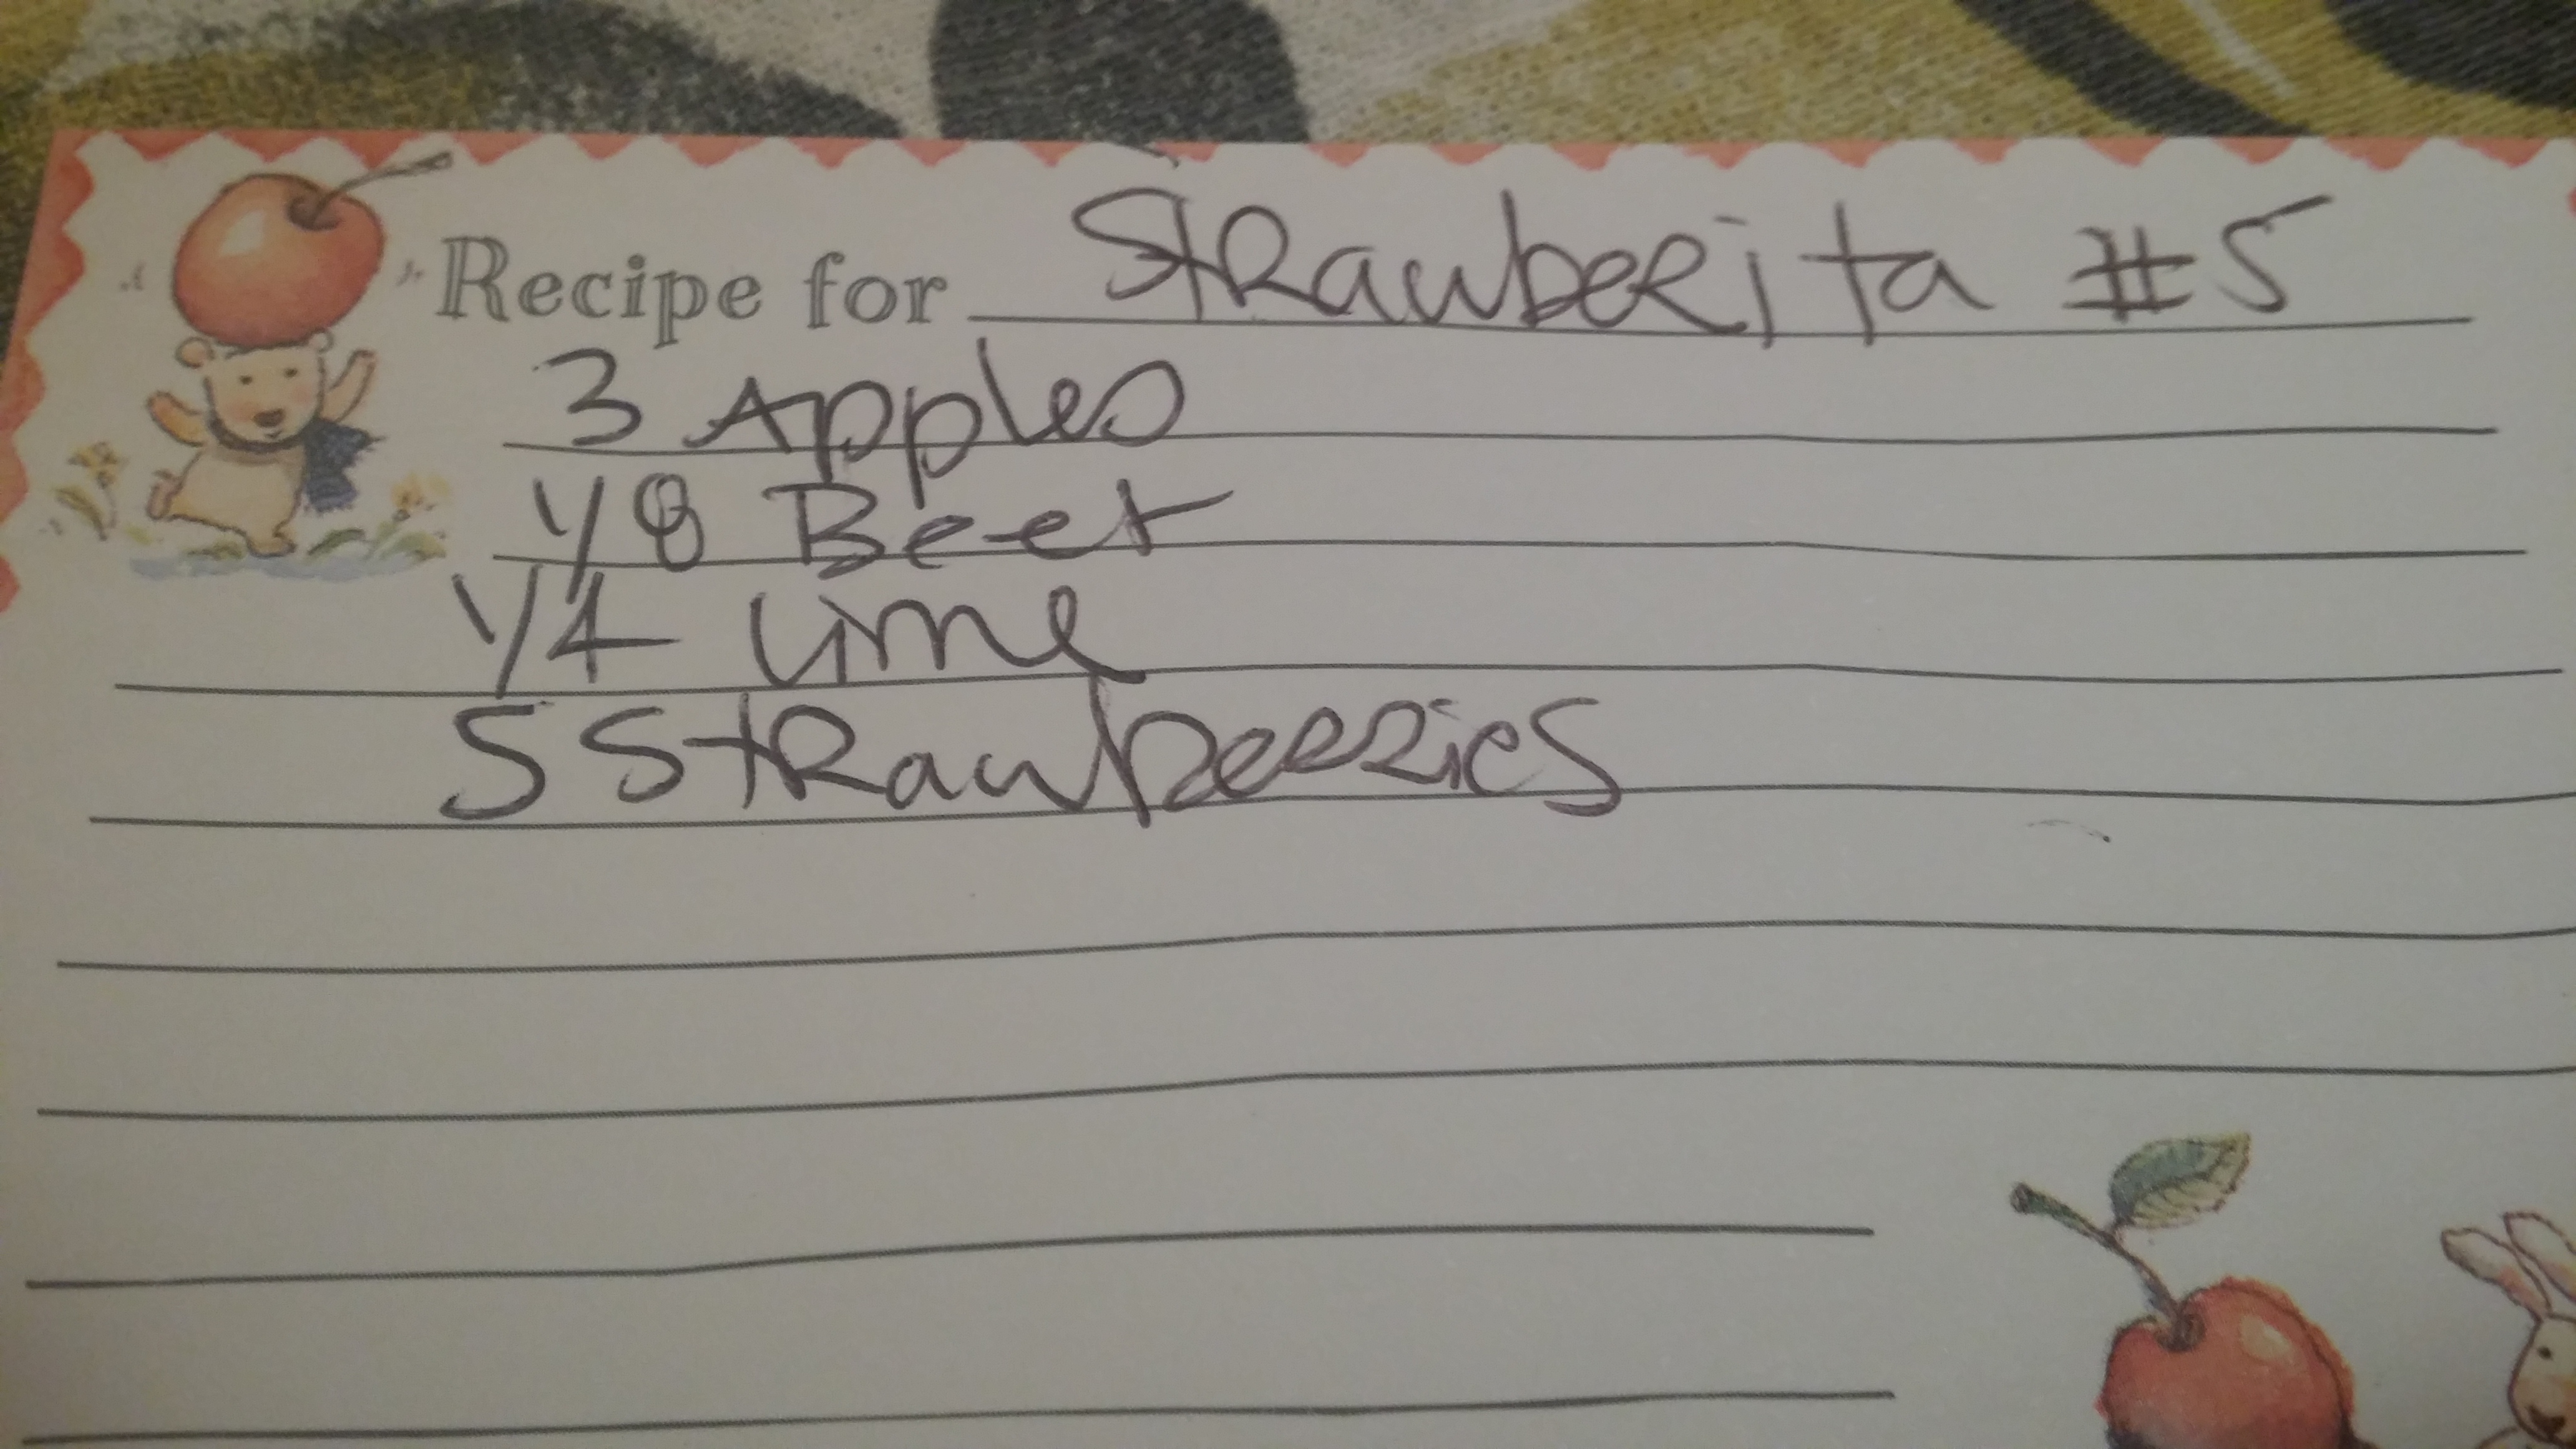 Recipe for Strawberita #5
3 Apples
1/8 Beet
1/4 Lime
5 Strawberries